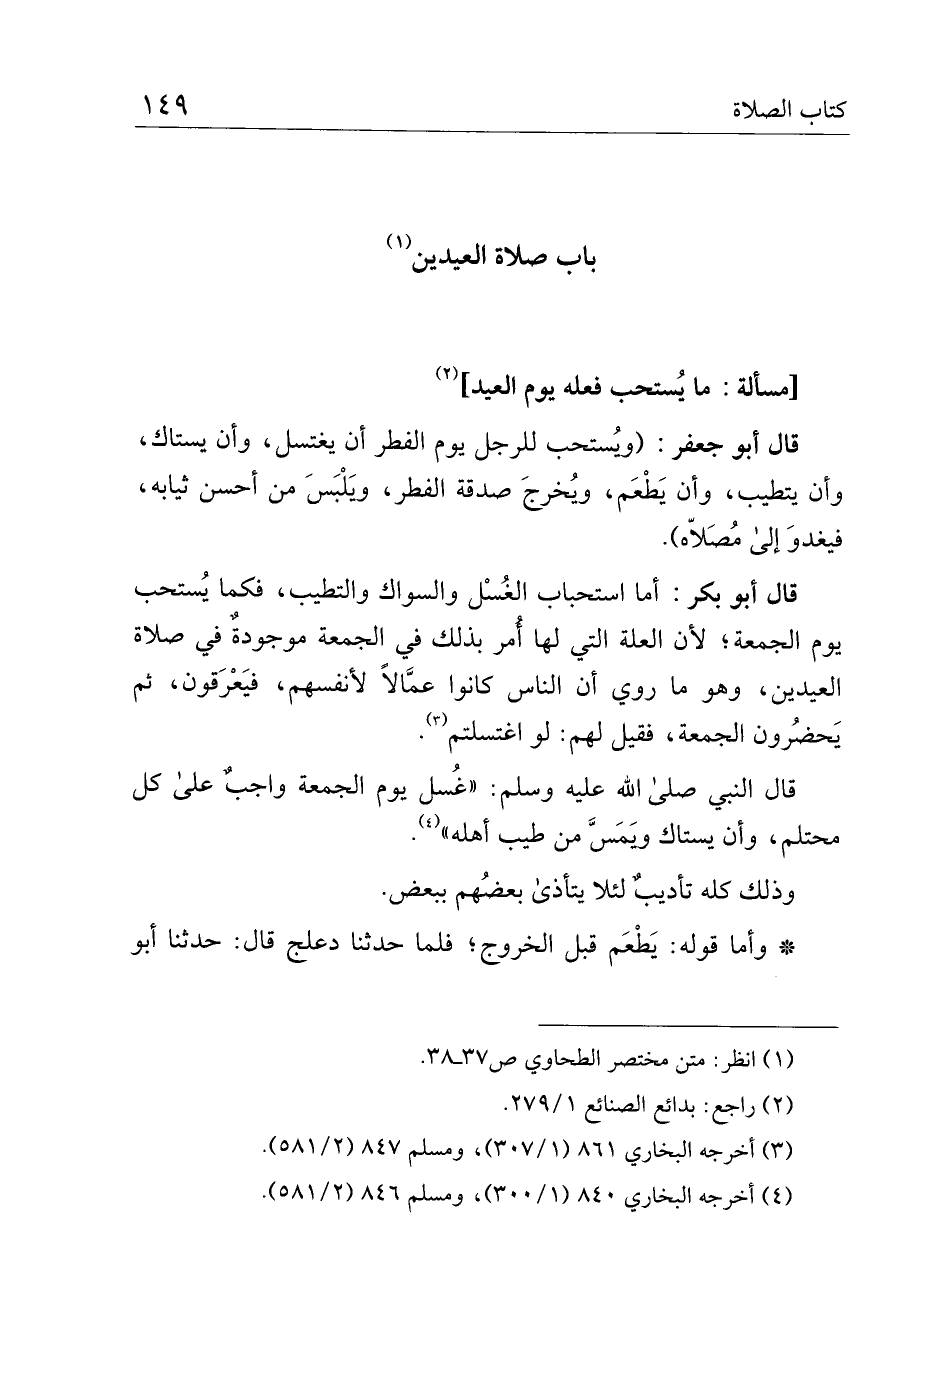 كتاب الصلاة ١٤٩
باب صلاة العيدين(١)
[مسألة : ما يُستحب فعله يوم العيد](٢)
قال أبو جعفر : (ويُستحب للرجل يوم الفطر أن يغتسل، وأن يستاك،
وأن يتطيب، وأن يَطْعَم، ويُخرجَ صدقة الفطر، ويَلْبَسَ من أحسن ثيابه،
فيغدوَ إلىٰ مُصَلاَّه).
قال أبو بكر : أما استحباب الغُسْل والسواك والتطيب، فكما يُستحب
يوم الجمعة؛ لأن العلة التي لها أُمر بذلك في الجمعة موجودةٌ في صلاة
العيدين، وهو ما روي أن الناس كانوا عمَّالاً لأنفسهم، فيَعْرَقون، ثم
يَحضُرون الجمعة، فقيل لهم: لو اغتسلتم(٣).
قال النبي صلىٰ الله عليه وسلم: «غُسل يوم الجمعة واجبٌ علىٰ كل
محتلم، وأن يستاك ويَمَسَّ من طيب أهله»(٤).
وذلك كله تأديبٌ لئلا يتأذىٰ بعضُهم ببعض.
* وأما قوله: يَطْعَم قبل الخروج؛ فلما حدثنا دعلج قال: حدثنا أبو
(١) انظر: متن مختصر الطحاوي ص٣٧ـ٣٨.
(٢) راجع: بدائع الصنائع ٢٧٩/١.
(٣) أخرجه البخاري ٨٦١ (٣٠٧/١)، ومسلم ٨٤٧ (٥٨١/٢).
(٤) أخرجه البخاري ٨٤٠ (٣٠٠/١)، ومسلم ٨٤٦ (٥٨١/٢).